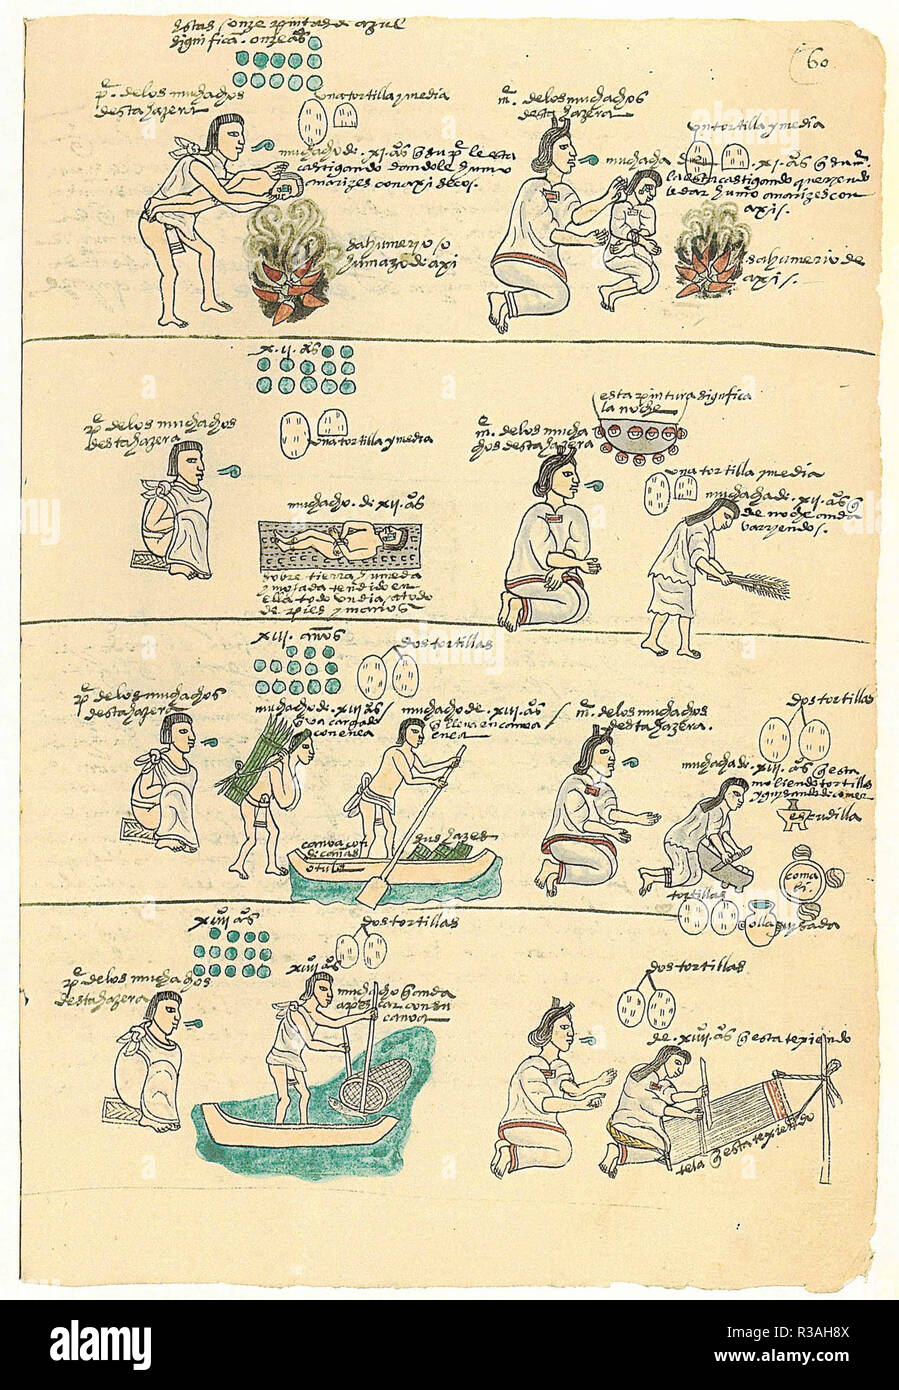 estas onze pintadas azul
significan onze aºs
60
pe. de los muchachos
desta hazera
una tortilla y media
muchacho de .xi. aºs q su pe le esta
castigando dandole humo
a narizes con axi secos.
sahumerio o
humazo de axi
me. de los muchachos
desta hazera
un tortilla y media
muchacha de .xi. aºs q su me.
la esta castigando queriendo
le dar humo a narizes con
axis.
sahumerio de
axis.
x.ii. aºs
pe de los muchachos
desta hazera
una tortilla y media
muchacho. de .xii. aºs
sobre tierra humeda
y mojada tendido en
ella todo un dia / atado
de pies y manos
esta pintura significa
la noche
me. de los mucha
chos desta hazera
una tortilla y media
muchacha de .xii. aºs q
de noche anda
varryendo.
xiii. años
dos tortillas
pe de los muchachos
desta hazera
muchacho de .xiii aºs
q va cargado
con enea
muchacho de .xiii. aºs
q lleva en canoa
enea
canoa con
sus hazes
de cañas
me de los muchachos
desta hazera.
dos tortillas
muchacha de .xiii. aºs q esta
moliendo tortillas
y guisando de comer
escudilla
coma
li.
tortillas
olla guisada
xiiii aºs
dos tortillas
pe de los muchachos
desta hazera
xiiii aºs
muchacho q anda
a pescar con su
canoa
dos tortillas
de .xiiii. aºs q esta texiendo
tela q esta texiendo
alamy
a
alamy
Image ID: R3AH8X
www.alamy.com